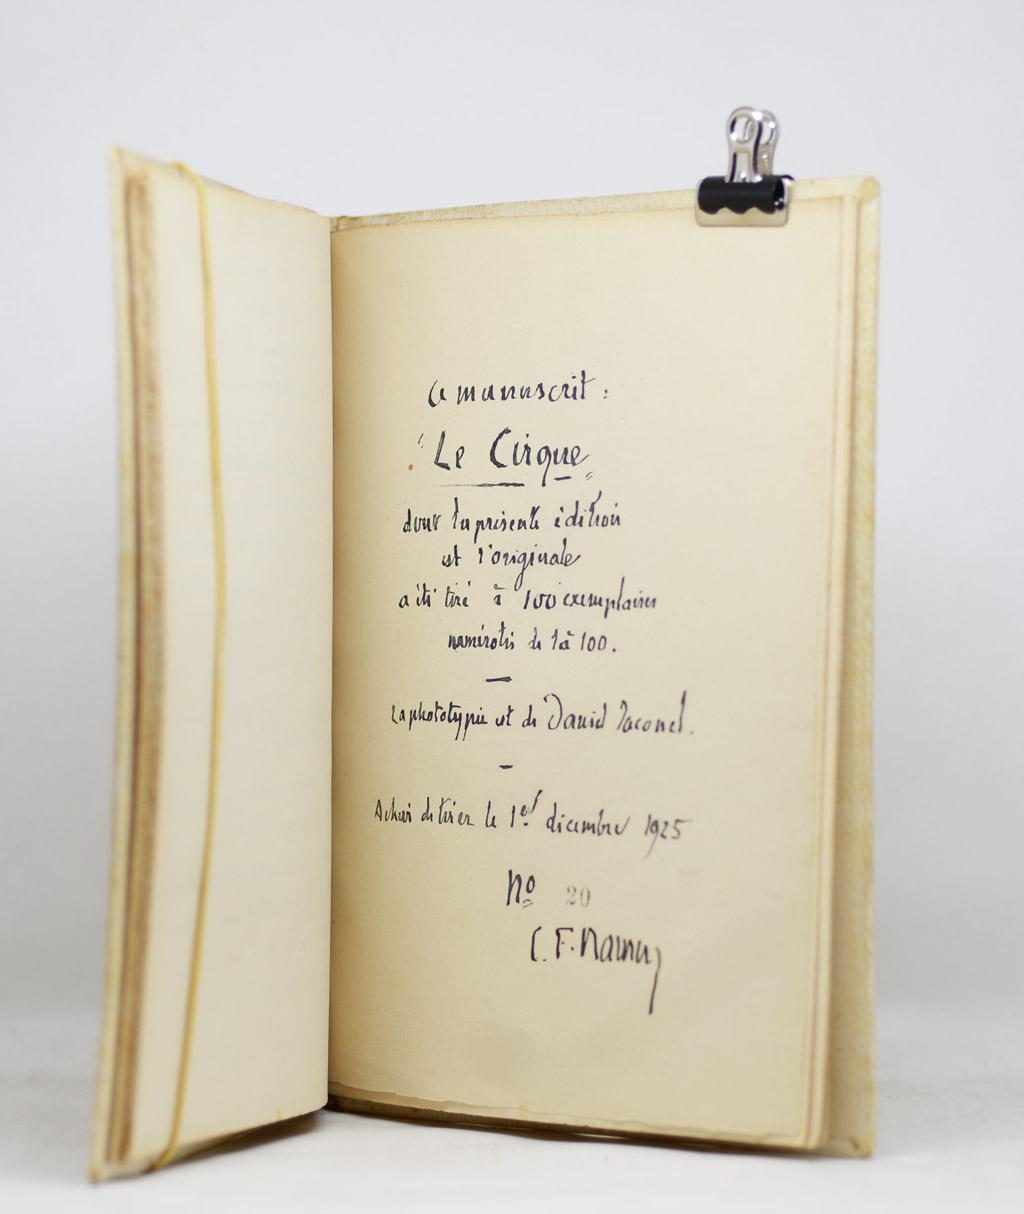 Ce manuscrit :
"Le Cirque"
dont la présente édition
est l'originale
a été tiré à 100 exemplaires
numérotés de 1 à 100.
La phototypie est de Daniel Jacomet.
Achevé de tirer le 1er décembre 1925
No 20
C. F. Ramuz